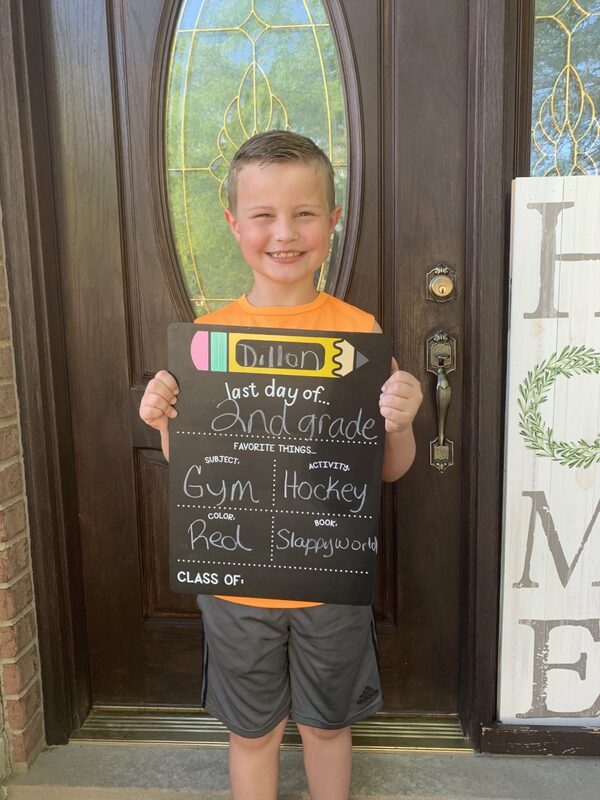 Dillon
last day of...
2nd grade
FAVORITE THINGS...
SUBJECT: ACTIVITY:
Gym Hockey
COLOR: BOOK:
Red Slappyworld
CLASS OF:
H
M
E
adidas